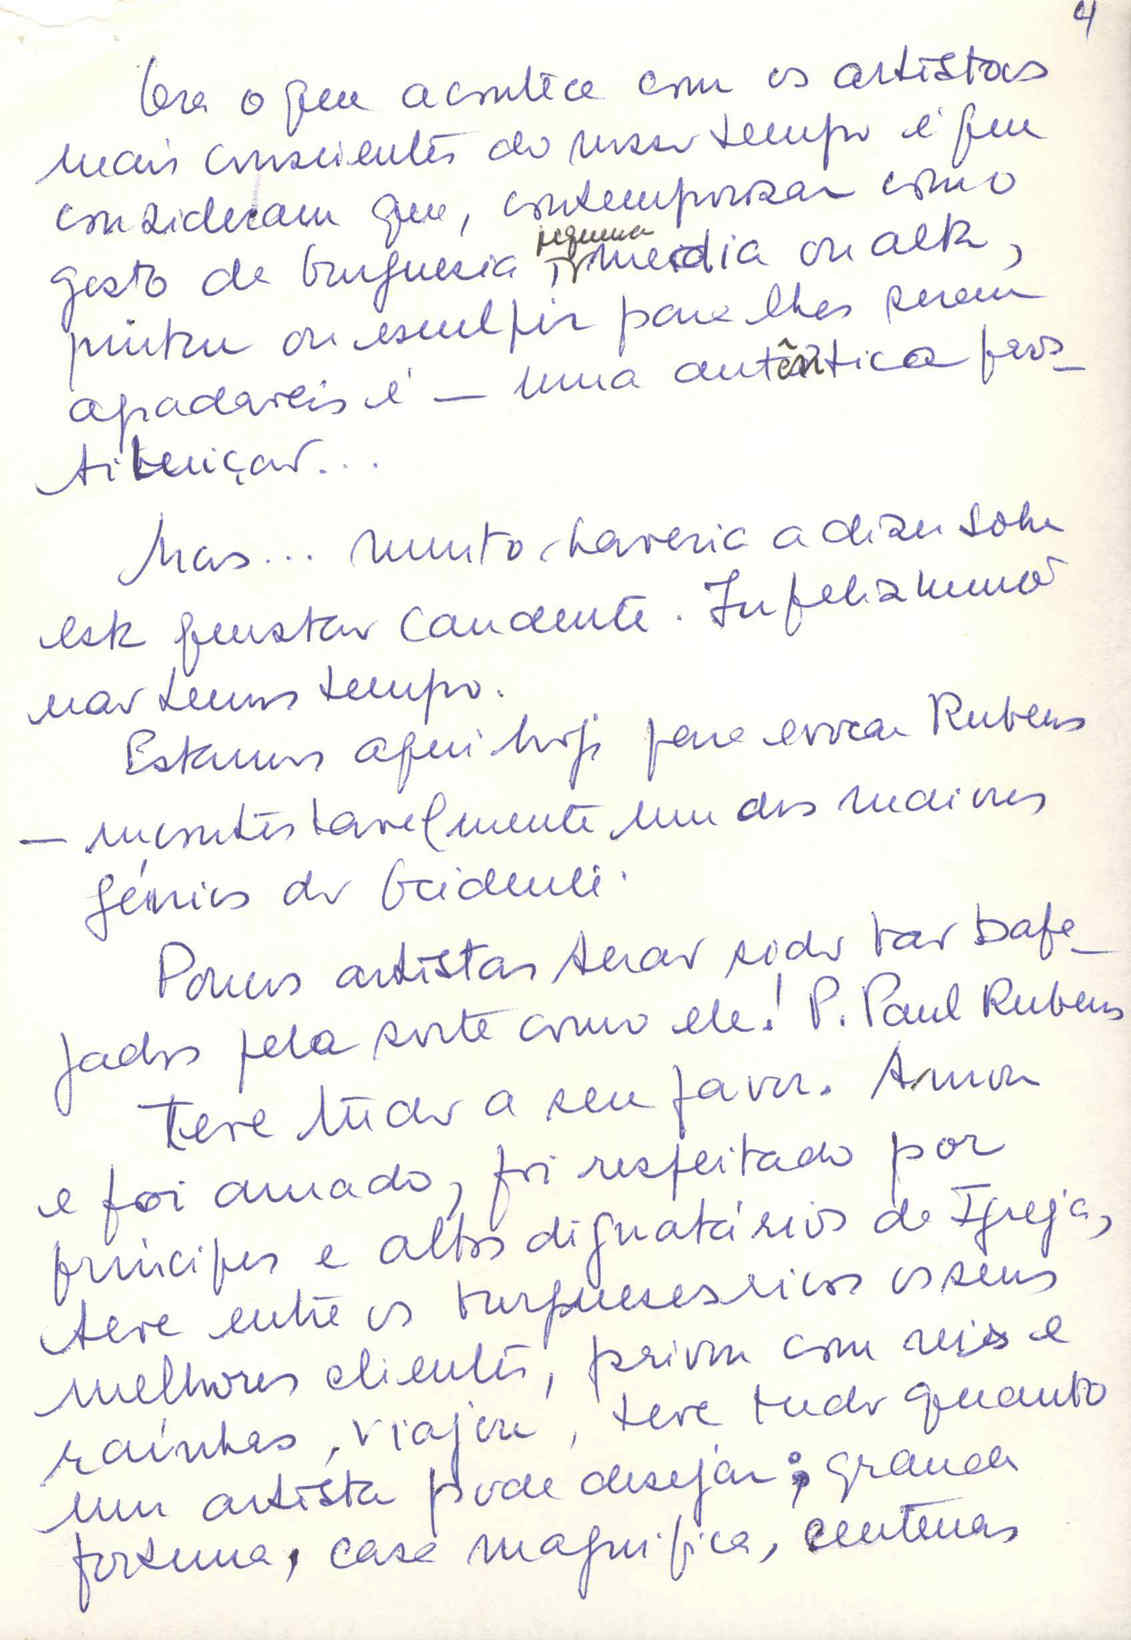 4
Ora o que acontece com os artistas
mais conscientes do nosso tempo é que
consideram que, contemporizar com o
gosto da burguesia pequena média ou alta,
pintar ou esculpir para lhes serem
agradáveis é — uma autêntica pros-
tituição...
Mas... muito haveria a dizer sobre
esta questão candente. Infelizmente
não temos tempo.
Estamos aqui hoje para evocar Rubens
— incontestavelmente um dos maiores
génios do Ocidente.
Poucos artistas terão sido tão bafe-
jados pela sorte como ele! P. Paul Rubens
teve tudo a seu favor. Amou
e foi amado, foi respeitado por
príncipes e altos dignatários da Igreja,
teve entre os burgueses ricos os seus
melhores clientes, privou com reis e
raínhas, viajou, teve tudo quanto
um artista pode desejar; grande
fortuna, casa magnifica, centenas